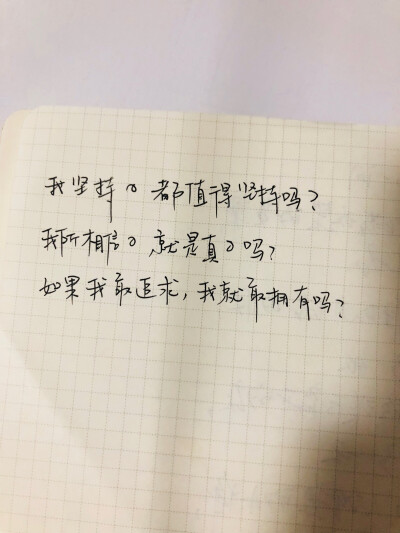 我坚持的 都值得坚持吗?
我所相信的 就是真的吗?
如果我敢追求,我就敢拥有吗?